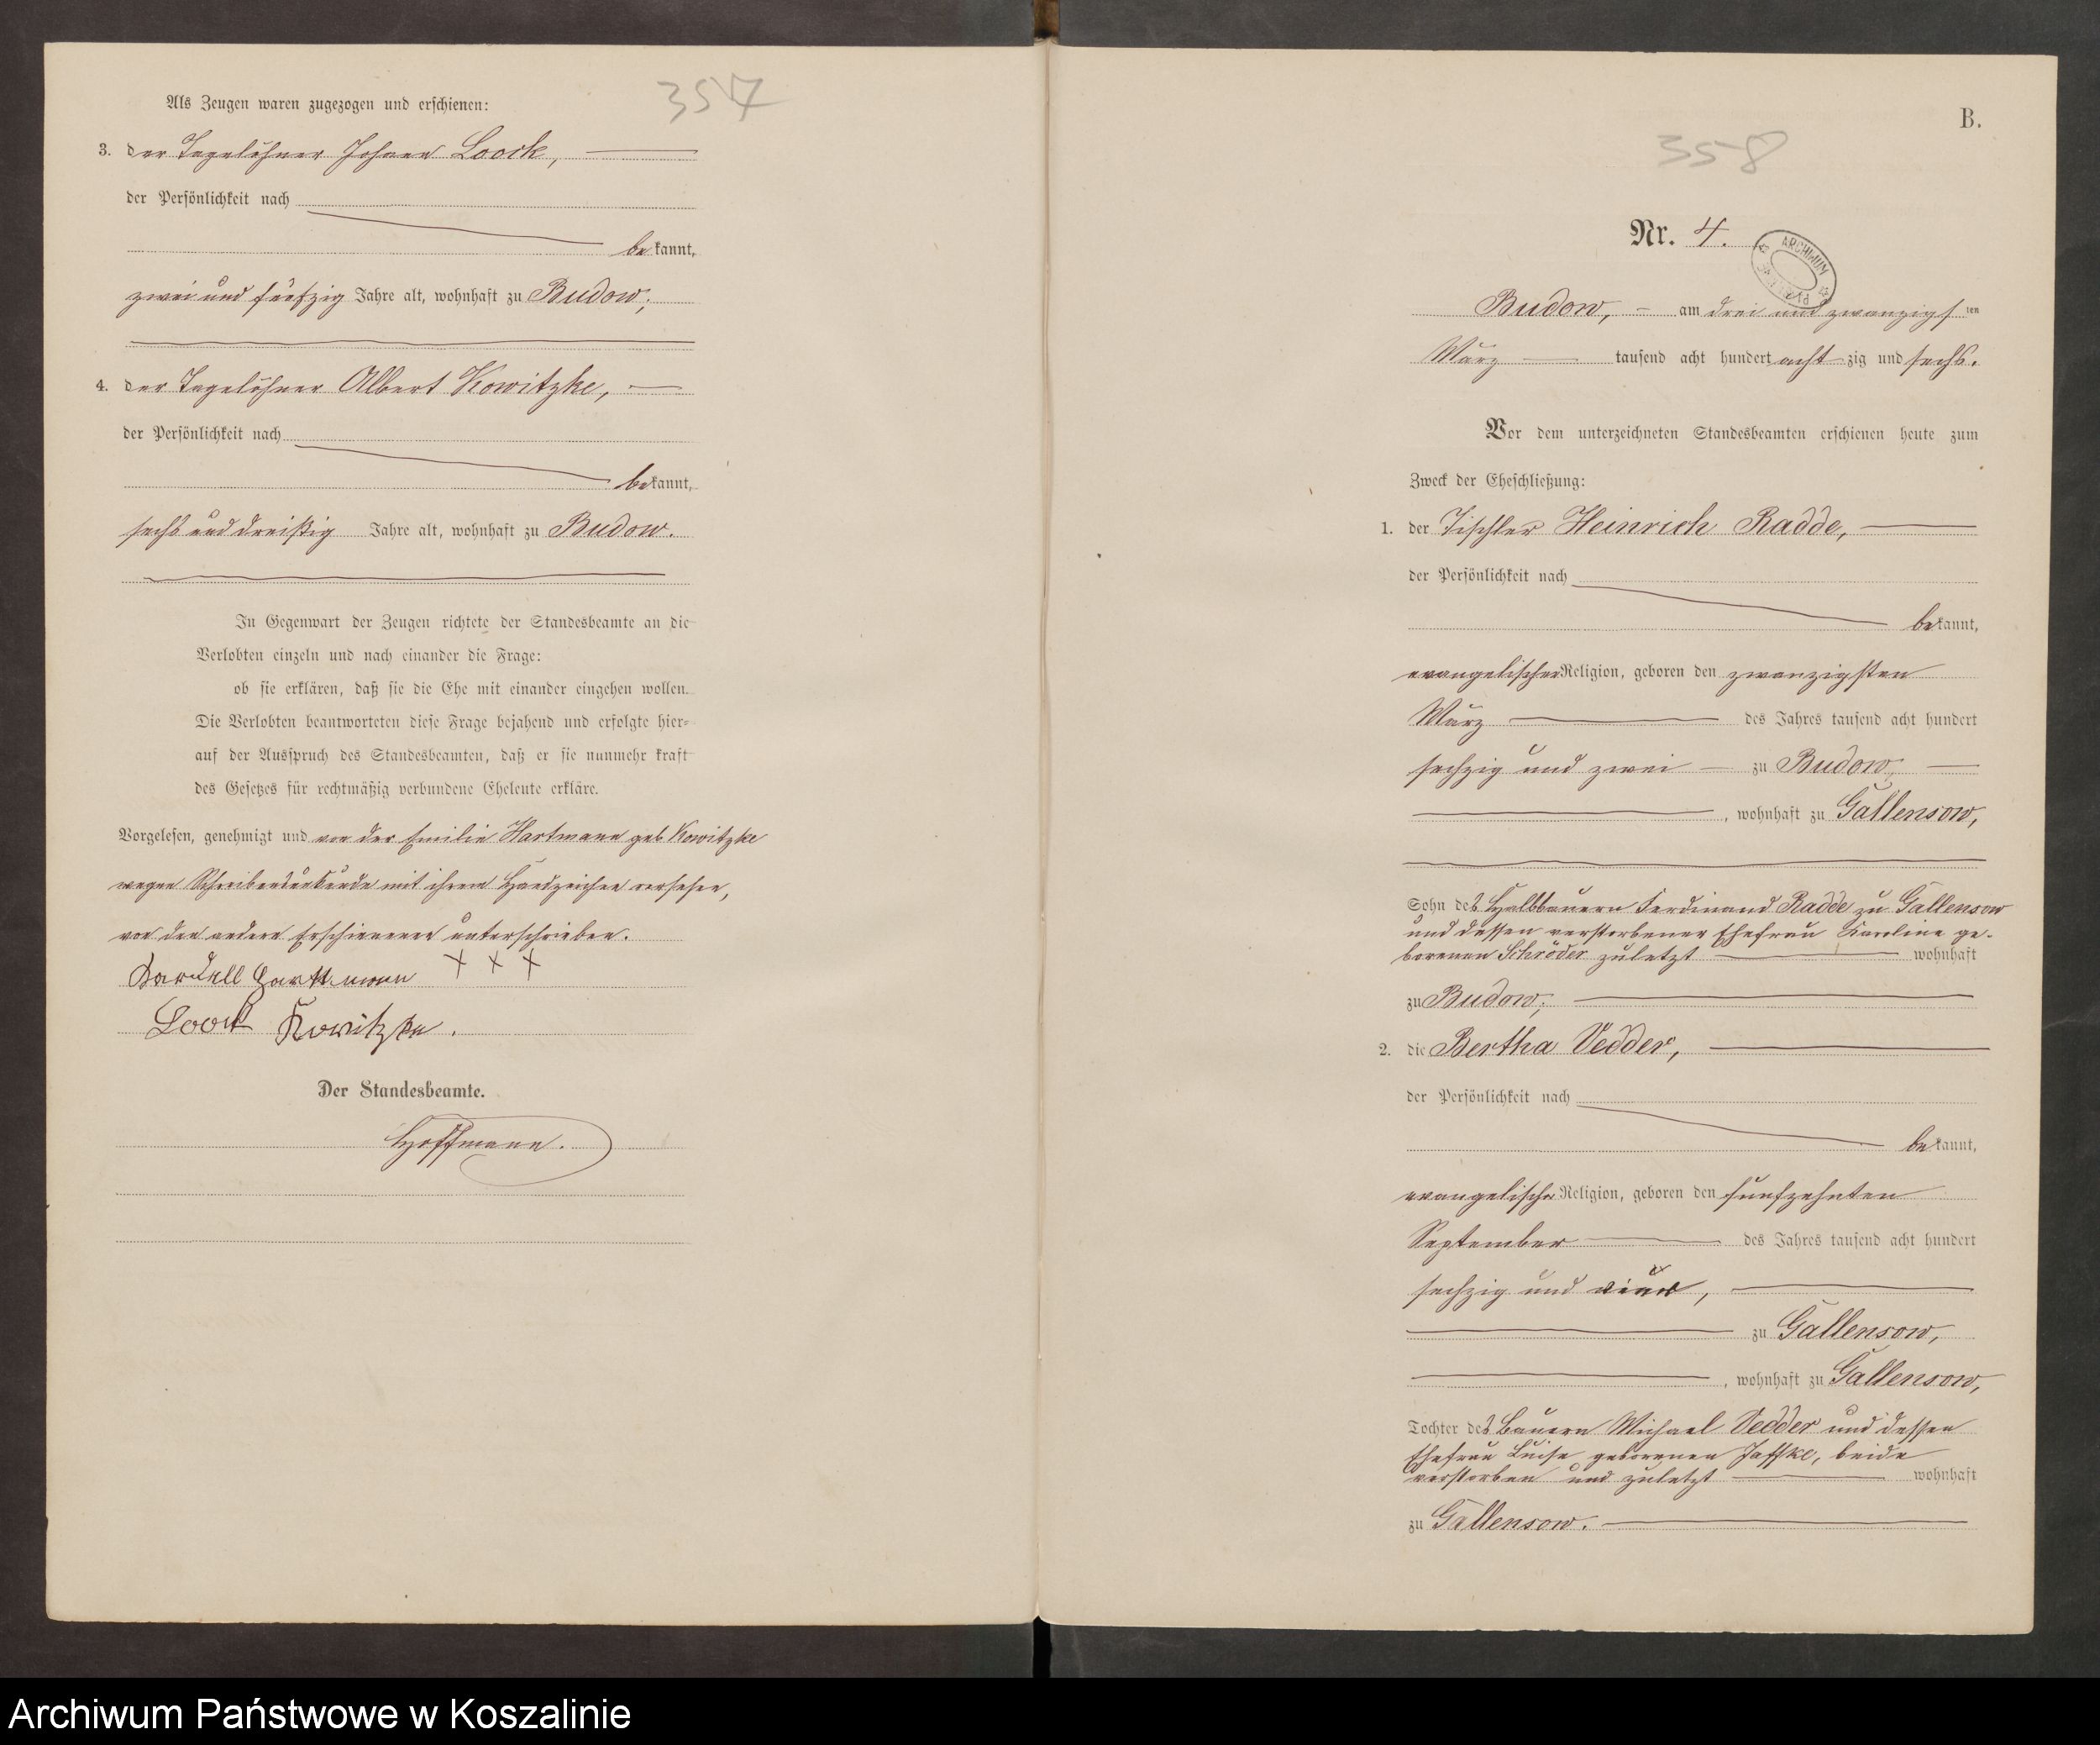 357
Als Zeugen waren zugezogen und erschienen:
3. der Tagelöhner Johann Loock,
der Persönlichkeit nach
be kannt,
zwei und fünfzig Jahre alt, wohnhaft zu Budow;
4. der Tagelöhner Albert Kowitzke,
der Persönlichkeit nach
be kannt,
sechs und dreißig Jahre alt, wohnhaft zu Budow.
In Gegenwart der Zeugen richtete der Standesbeamte an die
Verlobten einzeln und nach einander die Frage:
ob sie erklären, daß sie die Ehe mit einander eingehen wollen.
Die Verlobten beantworteten diese Frage bejahend und erfolgte hier-
auf der Ausspruch des Standesbeamten, daß er sie nunmehr kraft
des Gesetzes für rechtmäßig verbundene Eheleute erkläre.
Vorgelesen, genehmigt und von der Emilie Hartmann geb. Kowitzke
wegen Schreibensunkunde mit ihrem Handzeichen versehen,
von den andern Erschienenen unterschrieben.
Hartmann + + +
Loock Kowitzke.
Der Standesbeamte.
Hoffmann.
B.
358
Nr. 4.
ARCHIWUM
Budow, am drei und zwanzigs ten
März tausend acht hundert acht zig und sechs.
Vor dem unterzeichneten Standesbeamten erschienen heute zum
Zweck der Eheschließung:
1. der Tischler Heinrich Radde,
der Persönlichkeit nach
be kannt,
evangelischer Religion, geboren den zwanzigsten
März des Jahres tausend acht hundert
sechzig und zwei zu Budow,
, wohnhaft zu Gallensow,
Sohn des Halbbauern Ferdinand Radde zu Gallensow
und dessen verstorbener Ehefrau Karoline ge-
borenen Schröder zuletzt wohnhaft
zu Budow;
2. die Bertha Vedder,
der Persönlichkeit nach
be kannt,
evangelischer Religion, geboren den fünfzehnten
September des Jahres tausend acht hundert
sechzig und vier,
zu Gallensow,
, wohnhaft zu Gallensow,
Tochter des Bauern Michael Vedder und dessen
Ehefrau Luise geborenen Jaffke, beide
verstorben und zuletzt wohnhaft
zu Gallensow.
Archiwum Państwowe w Koszalinie